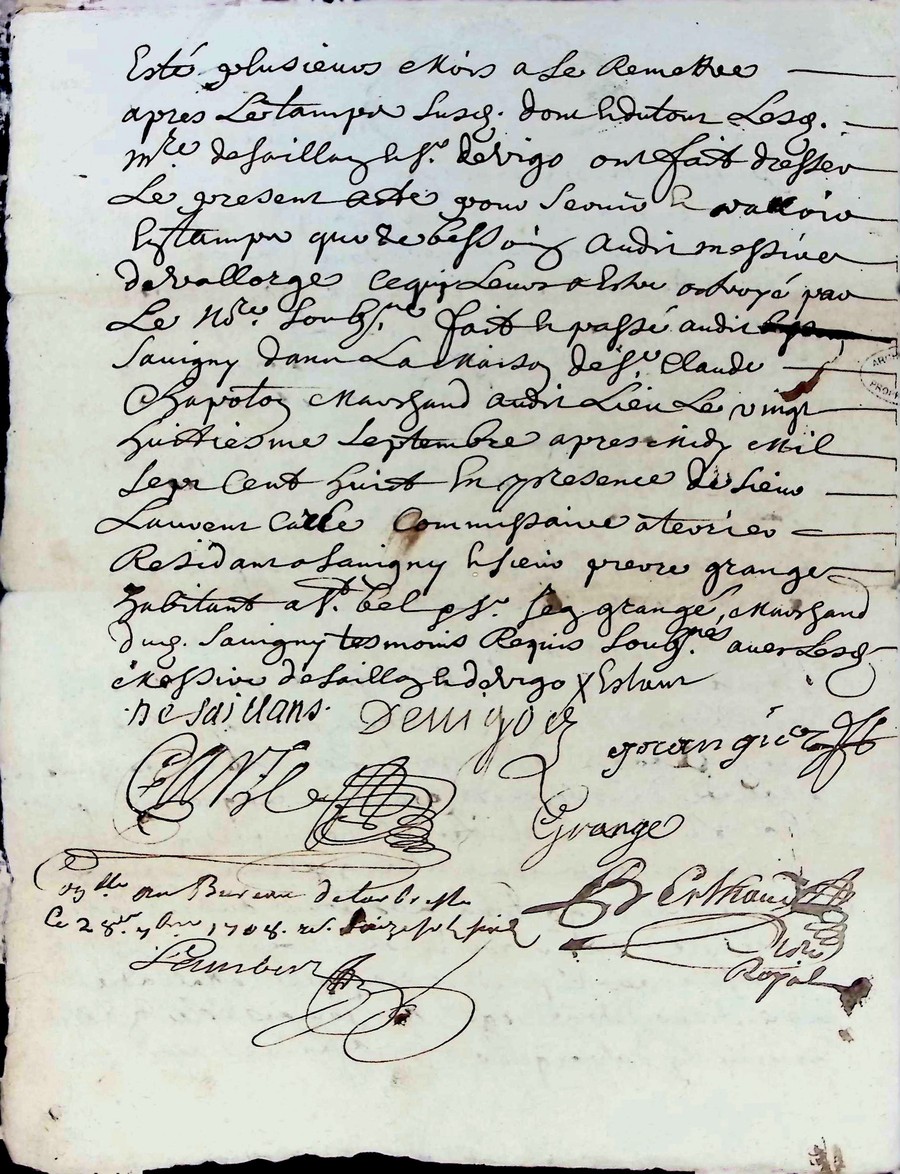 Esté plusieurs Mois a se Remettre
apres Lestampe Susd. dont & du tout Lesd.
mre. desaillans & Sr. devigo ont fait dresser
Le present acte pour Servir & valloir
En tampe que de bessoing audit messire
devallorge ce qui Leur a Este octroyé par
Le Nore. Soubsné. fait & passé audit
Savigny dans La Maison de Sr. Claude
Chapoton Marchand audit Lieu Le vingt
huittiesme Septembre apres midy Mil
Sept Cent huict En presence de Sieur
Laurent Carle Commissaire a terrier
Residant a Savigny & Sieur pierre grange
habitant a St. bel & Sr. grange, Marchand
dud. Savigny tesmoins Requis Soubnés. avec Lesd.
Messire desaillans & devigo Estant
De saillans. Devigo
grangier
CARLE
Grange
au Bureau de larbresle
Ce 28e. 7bre 1708. rs.
Berthaud
Nore
Royal
Lambert